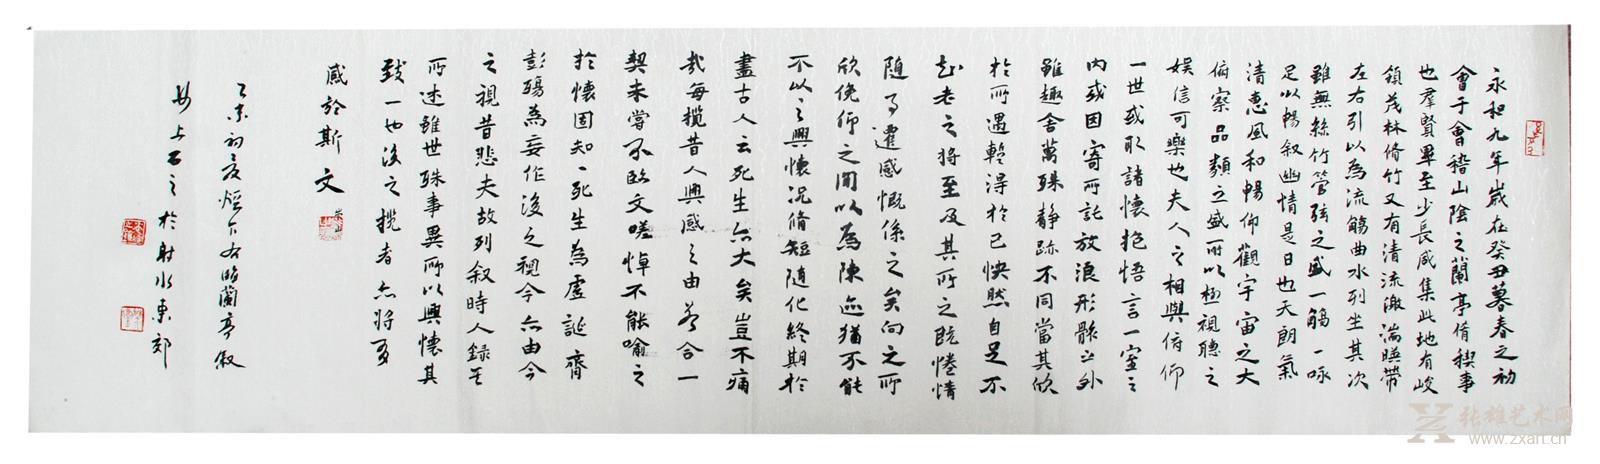 永和九年歲在癸丑暮春之初
會于會稽山陰之蘭亭脩稧事
也羣賢畢至少長咸集此地有峻
領茂林脩竹又有清流激湍暎帶
左右引以為流觴曲水列坐其次
雖無絲竹管弦之盛一觴一咏
足以暢叙幽情是日也天朗氣
清惠風和暢仰觀宇宙之大
俯察品類之盛所以極視聽之
娛信可樂也夫人之相與俯仰
一世或取諸懷抱悟言一室之
內或因寄所託放浪形骸之外
雖趣舍萬殊静躁不同當其欣
於所遇輕得於己怏然自足不
知老之將至及其所之既惓情
隨事遷感慨係之矣向之所
欣俛仰之間以為陳迹猶不能
不以之興懷況脩短隨化終期於
盡古人云死生亦大矣豈不痛
哉每攬昔人興感之由若合一
契未嘗不臨文嗟悼不能喻之
於懷固知一死生為虛誕齊
彭殤為妄作後之視今亦由今
之視昔悲夫故列叙時人錄其
所述雖世殊事異所以興懷其
致一也後之攬者亦將有
感於斯文
乙未初夏燈下右臨蘭亭叙
石之於射水東郊
张雄艺术网
www.zxart.cn